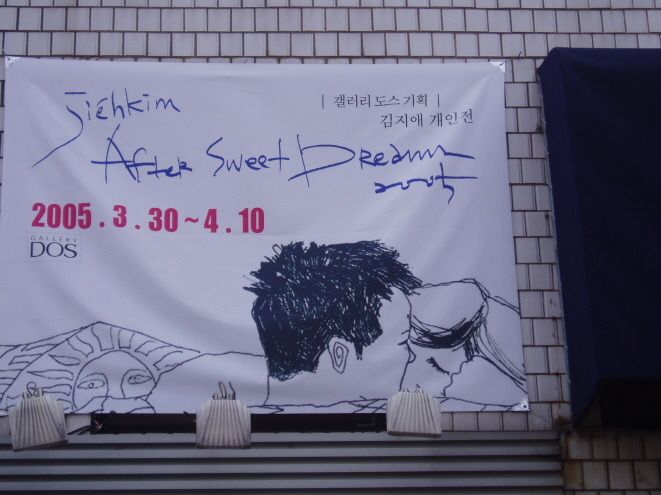 jiehkim
| 갤러리 도스 기획 |
김지애 개인전
After Sweet Dreams
2005
2005 . 3 . 30 ~ 4 . 10
GALLERY
DOS